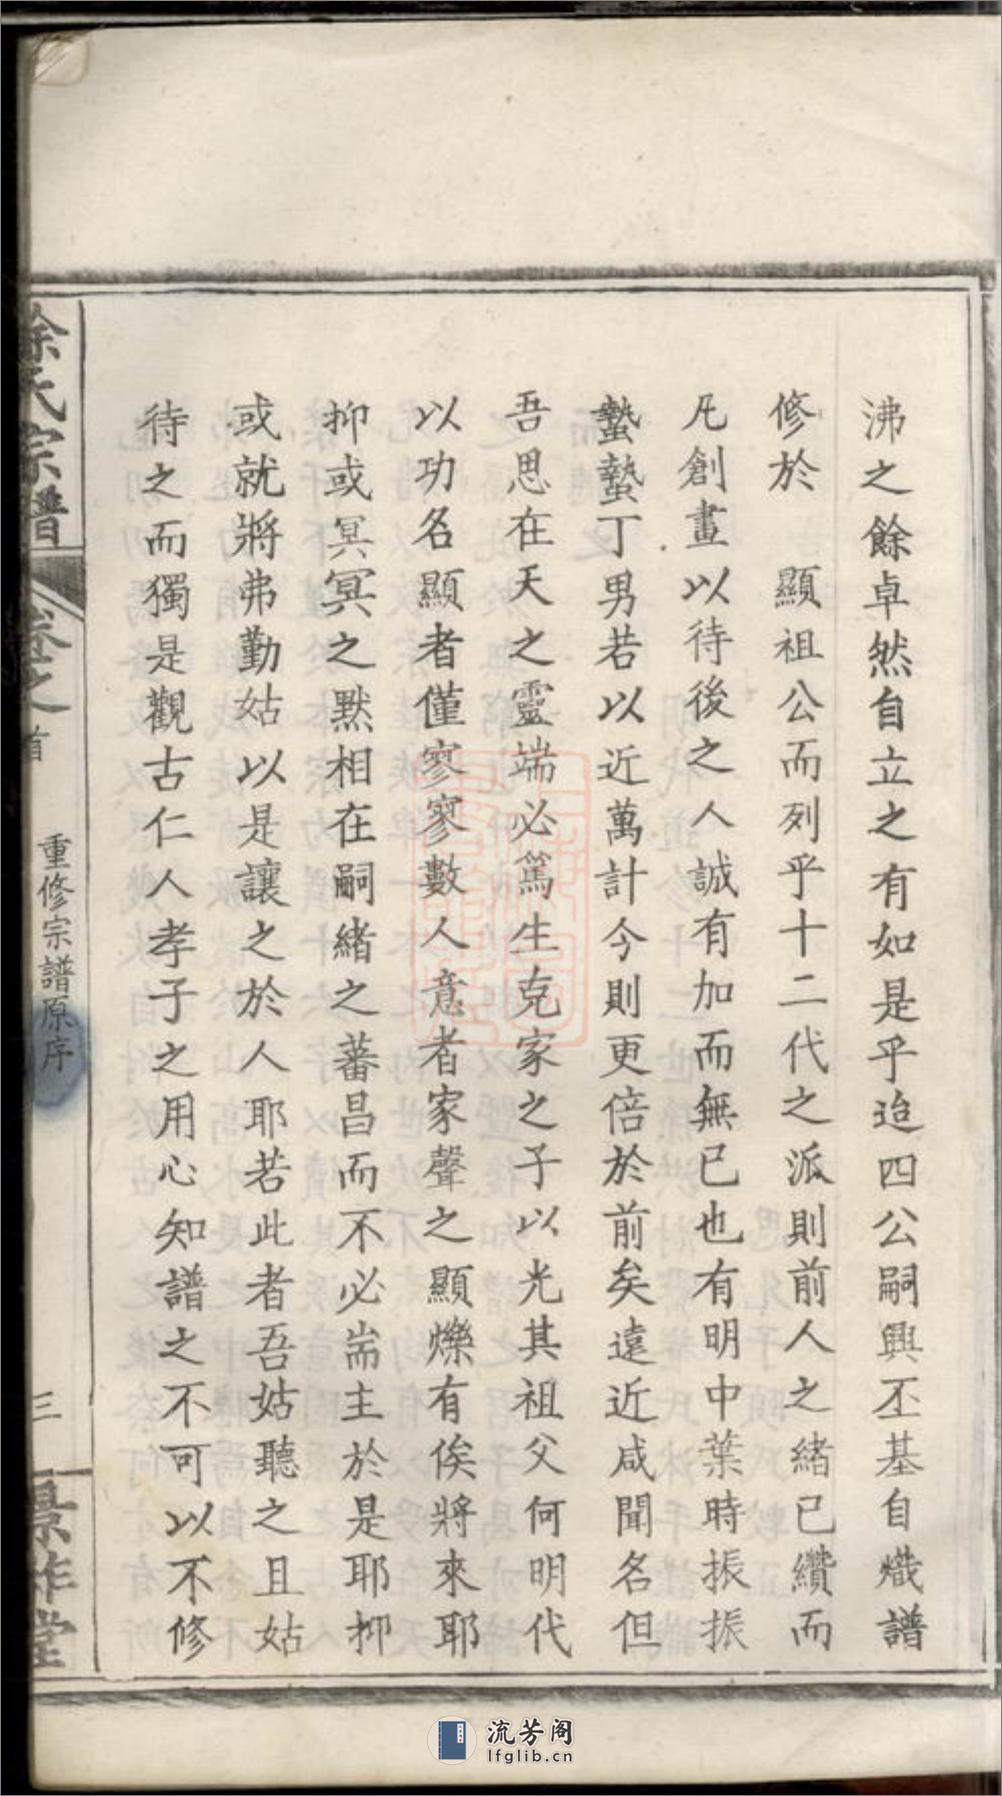 沸之餘卓然自立之有如是乎迨四公嗣興丕基自熾譜
修於　顯祖公而列乎十二代之派則前人之緒已纘而
凡創畫以待後之人誠有加而無已也有明中葉時振振
蟄蟄丁男若以近萬計今則更倍於前矣遠近咸聞名但
吾思在天之靈端必篤生克家之子以光其祖父何明代
以功名顯者僅寥寥數人意者家聲之顯爍有俟將來耶
抑或冥冥之默相在嗣緒之蕃昌而不必耑主於是耶抑
或就將弗勤姑以是讓之於人耶若此者吾姑聽之且姑
待之而獨是觀古仁人孝子之用心知譜之不可以不修
氏宗譜
卷之首
重修宗譜原序
三
堂
流芳阁
lfglib.cn